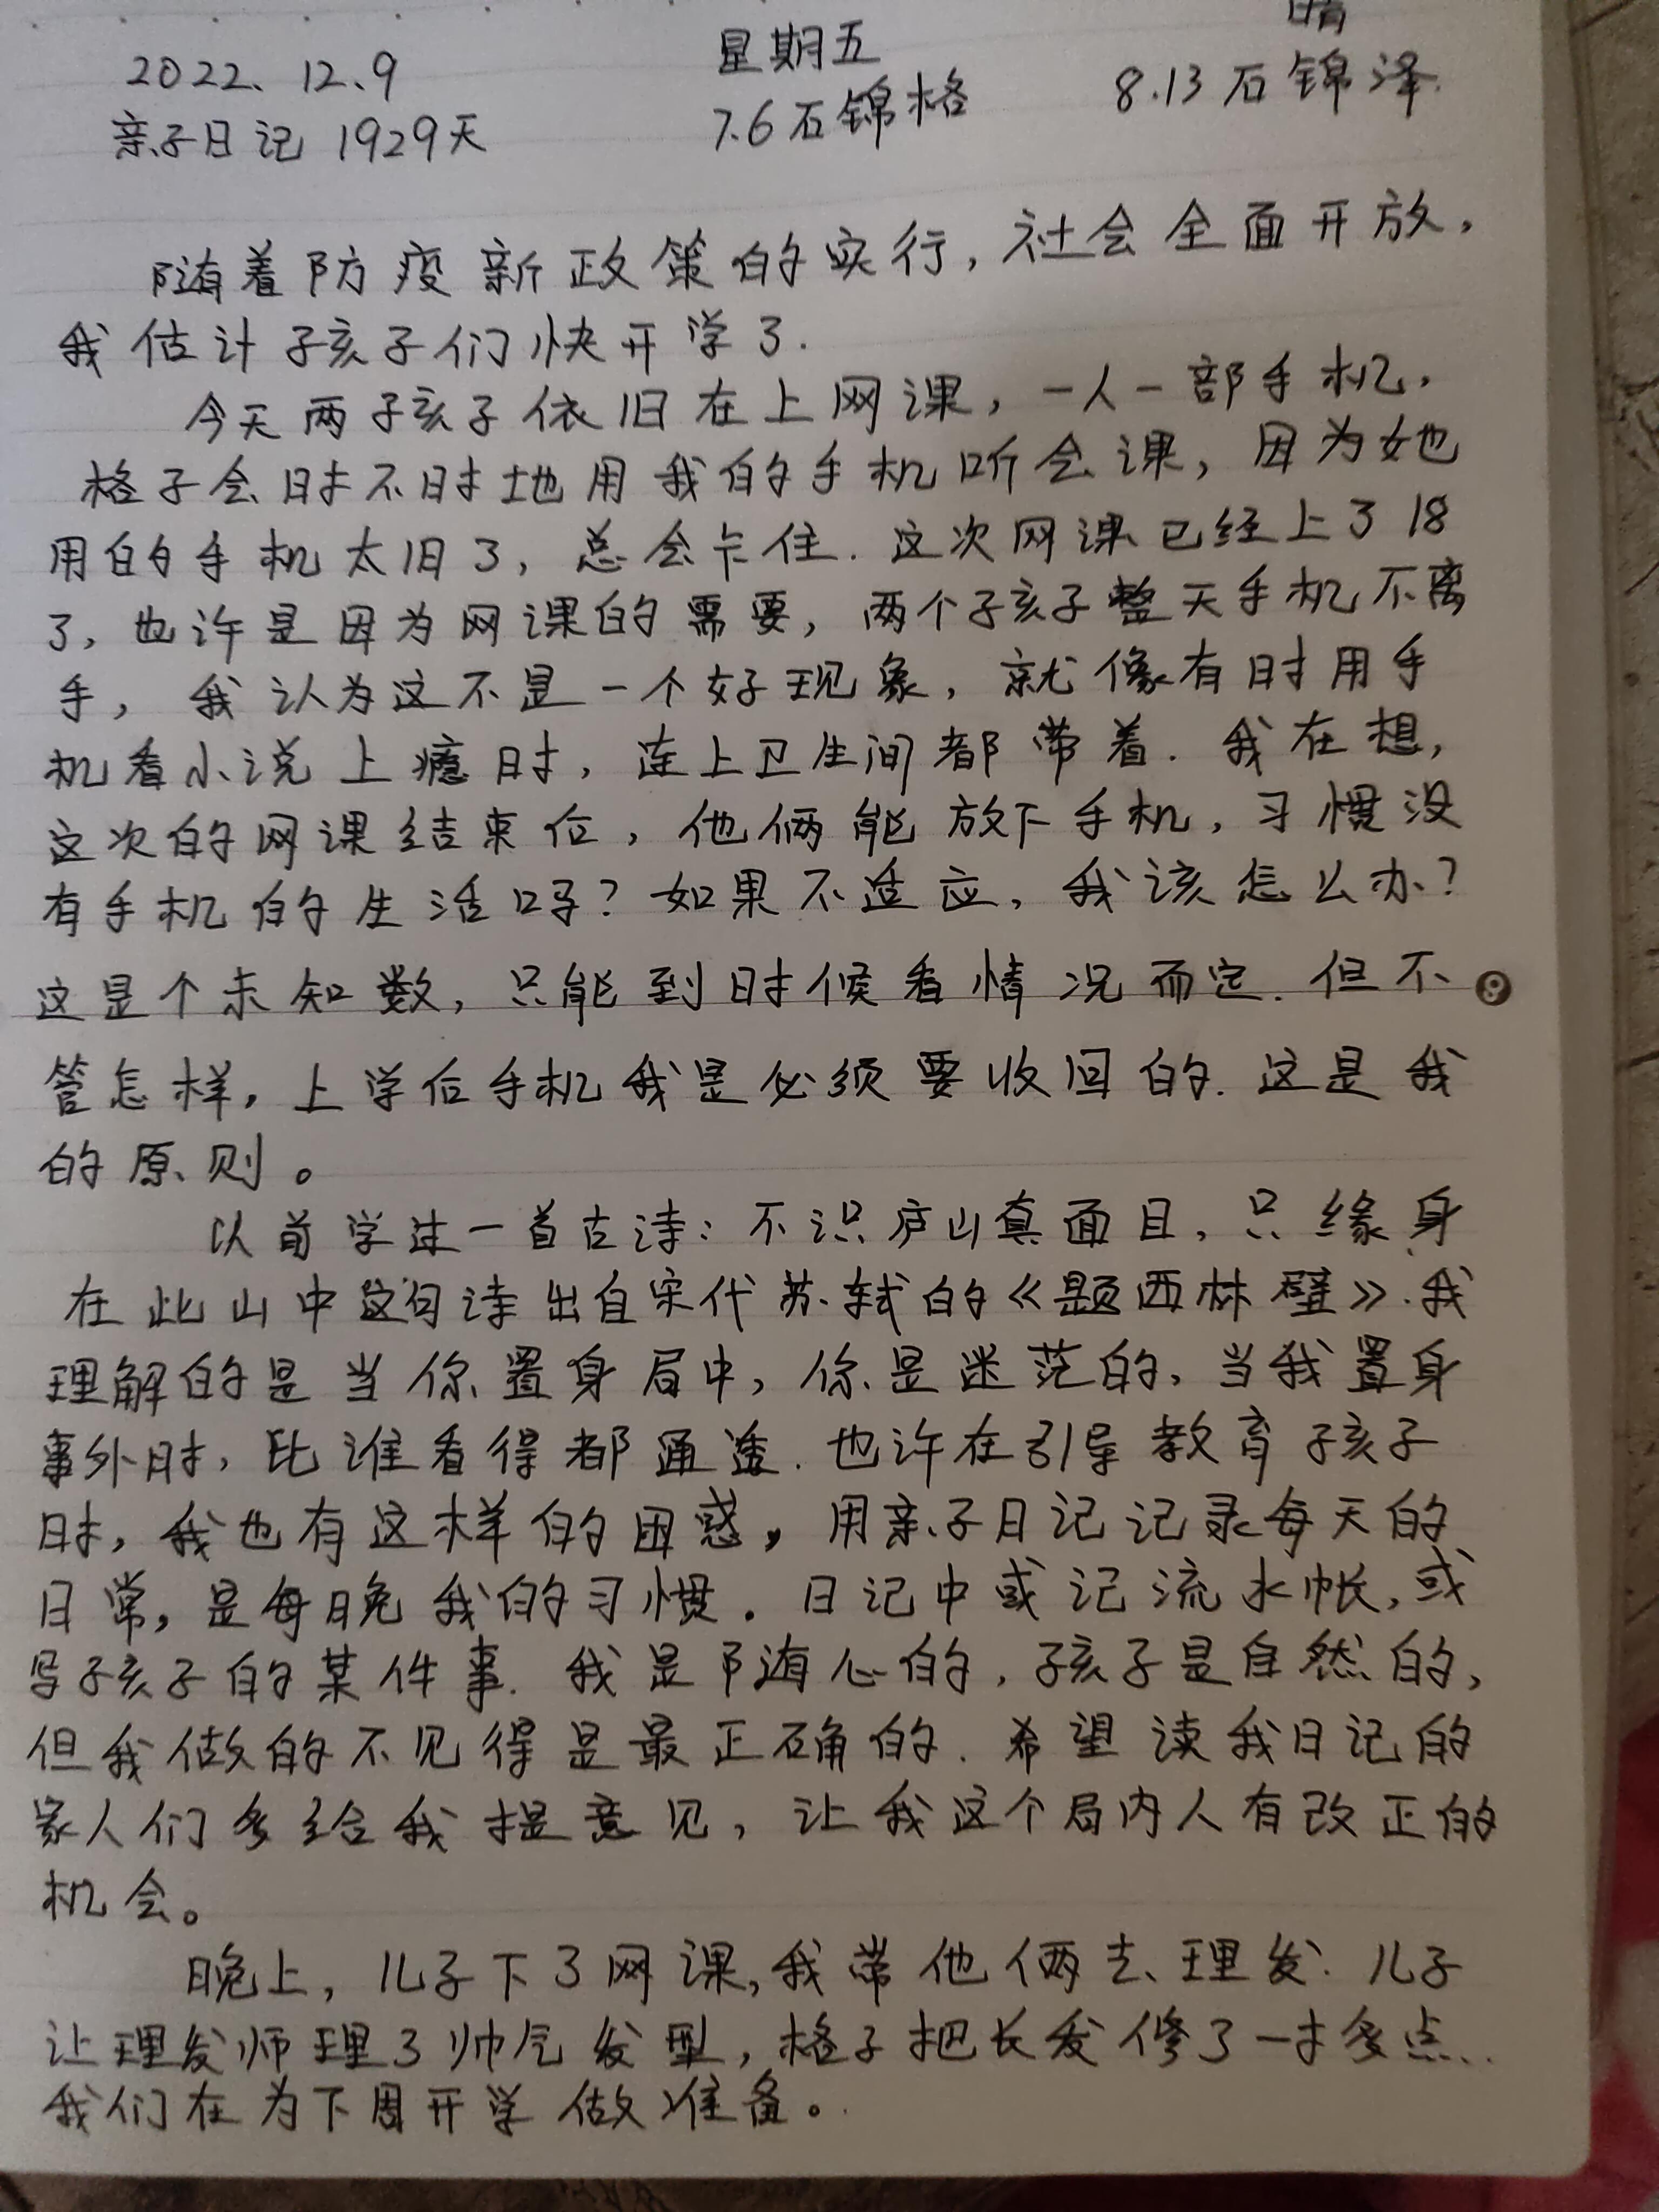 2022、12、9 星期五 晴
亲子日记 1929天 7.6石锦格 8.13石锦泽
随着防疫新政策的实行，社会全面开放，
我估计孩子们快开学了.
今天两孩子依旧在上网课，一人一部手机，
格子会时不时地用我的手机听会课，因为她
用的手机太旧了，总会卡住.这次网课已经上了18
了，也许是因为网课的需要，两个孩子整天手机不离
手，我认为这不是一个好现象，就像有时用手
机看小说上瘾时，连上卫生间都带着.我在想，
这次的网课结束后，他俩能放下手机，习惯没
有手机的生活吗？如果不适应，我该怎么办？
这是个未知数，只能到时候看情况而定.但不
管怎样，上学后手机我是必须要收回的.这是我
的原则。
以前学过一首古诗：不识庐山真面目，只缘身
在此山中这句诗出自宋代苏轼的《题西林壁》.我
理解的是当你置身局中，你是迷茫的，当我置身
事外时，比谁看得都通透.也许在引导教育孩子
时，我也有这样的困惑，用亲子日记记录每天的
日常，是每晚我的习惯。日记中或记流水帐，或
写孩子的某件事.我是随心的，孩子是自然的，
但我做的不见得是最正确的.希望读我日记的
家人们多给我提意见，让我这个局内人有改正的
机会。
晚上，儿子下了网课，我带他俩去理发.儿子
让理发师理了帅气发型，格子把长发修了一寸多点.
我们在为下周开学做准备。